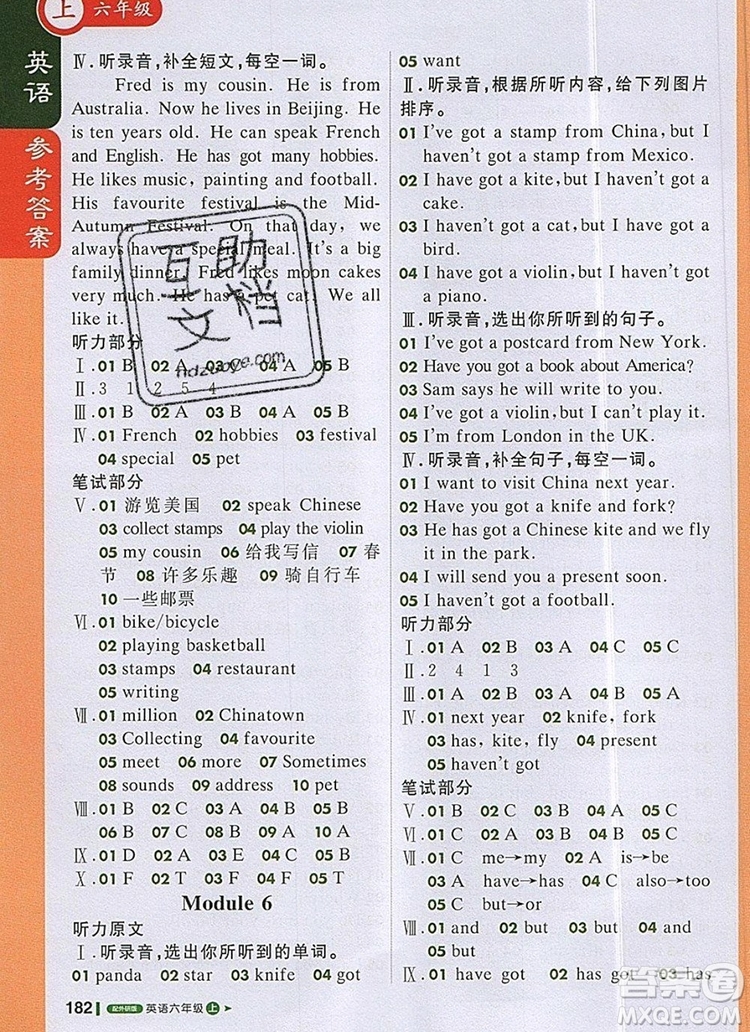 上 六年级
英语
参考答案
Ⅳ.听录音,补全短文,每空一词。
Fred is my cousin. He is from
Australia. Now he lives in Beijing. He
is ten years old. He can speak French
and English. He has got many hobbies.
He likes music, painting and football.
His favourite festival is the Mid-
Autumn Festival. On that day, we
always have a special meal. It's a big
family dinner. Fred likes moon cakes
very much. He has a pet cat. We all
like it.
听力部分
Ⅰ.01 B 02 A 03 C 04 A
Ⅱ.3 1 2 5 4
Ⅲ.01 B 02 A 03 B 04 B 05 A
Ⅳ.01 French 02 hobbies 03 festival
04 special 05 pet
笔试部分
Ⅴ.01 游览美国 02 speak Chinese
03 collect stamps 04 play the violin
05 my cousin 06 给我写信 07 春
节 08 许多乐趣 09 骑自行车
10 一些邮票
Ⅵ.01 bike/bicycle
02 playing basketball
03 stamps 04 restaurant
05 writing
Ⅶ.01 million 02 Chinatown
03 Collecting 04 favourite
05 meet 06 more 07 Sometimes
08 sounds 09 address 10 pet
Ⅷ.01 B 02 C 03 A 04 B 05 B
06 B 07 C 08 B 09 A 10 B
Ⅸ.01 D 02 A 03 E 04 C 05 B
Ⅹ.01 F 02 T 03 F 04 F 05 T
Module 6
听力原文
Ⅰ.听录音,选出你所听到的单词。
01 panda 02 star 03 knife 04 got
05 want
Ⅱ.听录音,根据所听内容,给下列图片
排序。
01 I've got a stamp from China, but I
haven't got a stamp from Mexico.
02 I have got a kite, but I haven't got a
cake.
03 I haven't got a cat, but I have got a
bird.
04 I have got a violin, but I haven't got
a piano.
Ⅲ.听录音,选出你所听到的句子。
01 I've got a postcard from New York.
02 Have you got a book about America?
03 Sam says he will write to you.
04 I've got a violin, but I can't play it.
05 I'm from London in the UK.
Ⅳ.听录音,补全句子,每空一词。
01 I want to visit China next year.
02 Have you got a knife and fork?
03 He has got a Chinese kite and we fly
it in the park.
04 I will send you a present soon.
05 I haven't got a football.
听力部分
Ⅰ.01 A 02 B 03 A 04 C 05 C
Ⅱ.2 4 1 3
Ⅲ.01 B 02 B 03 A 04 B 05 A
Ⅳ.01 next year 02 knife, fork
03 has, kite, fly 04 present
05 haven't got
笔试部分
Ⅴ.01 B 02 C 03 A 04 B 05 C
Ⅵ.01 C 02 A 03 B 04 B 05 C
Ⅶ.01 C me→my 02 A is→be
03 A have→has 04 C also→too
05 C but→or
Ⅷ.01 and 02 but 03 and 04 and
05 but
Ⅸ.01 have got 02 got 03 has
182 配外研版 英语六年级 上
互助
文档
Hdzuoye.com
答案圈
MXQE.COM